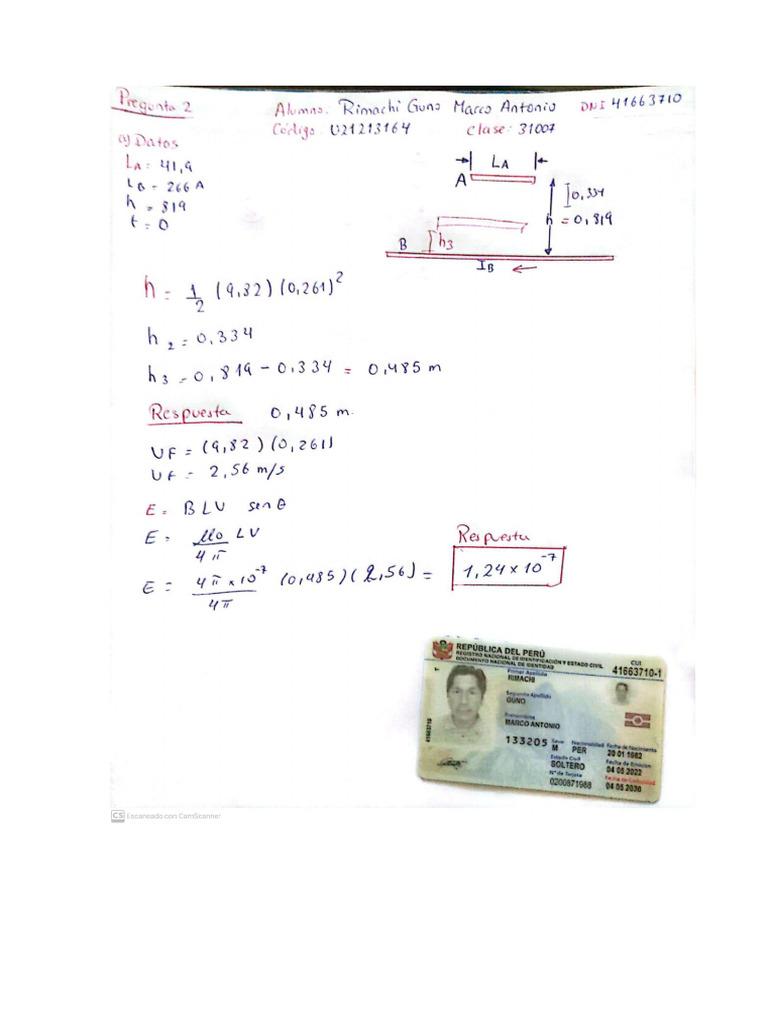 Pregunta 2
Alumno: Rimachi Guno Marco Antonio DNI 41663710
Código: U21213164 clase: 31007
a) Datos
LA = 41,9
LB = 266 A
h = 819
t = 0
LA
A
0,334
h = 0,819
B
h3
IB
h = 1/2 (9,82) (0,261)²
h2 = 0,334
h3 = 0,819 - 0,334 = 0,485 m
Respuesta 0,485 m.
UF = (9,82) (0,261)
Uf = 2,56 m/s
E = BLV sen θ
E = μo/4π LV
E = 4π x 10⁻⁷/4π (0,485) (2,56) = 1,24 x 10⁻⁷
Respuesta
REPÚBLICA DEL PERÚ
REGISTRO NACIONAL DE IDENTIFICACIÓN Y ESTADO CIVIL
DOCUMENTO NACIONAL DE IDENTIDAD
CUI
41663710-1
Primer Apellido
RIMACHI
Segundo Apellido
GUNO
Prenombres
MARCO ANTONIO
133205
Sexo Nacionalidad Fecha de Nacimiento
M PER 20 01 1982
Estado Civil Fecha de Emisión
SOLTERO 04 05 2022
N° de Tarjeta Fecha de Caducidad
0200871988 04 05 2030
41663710
CS Escaneado con CamScanner